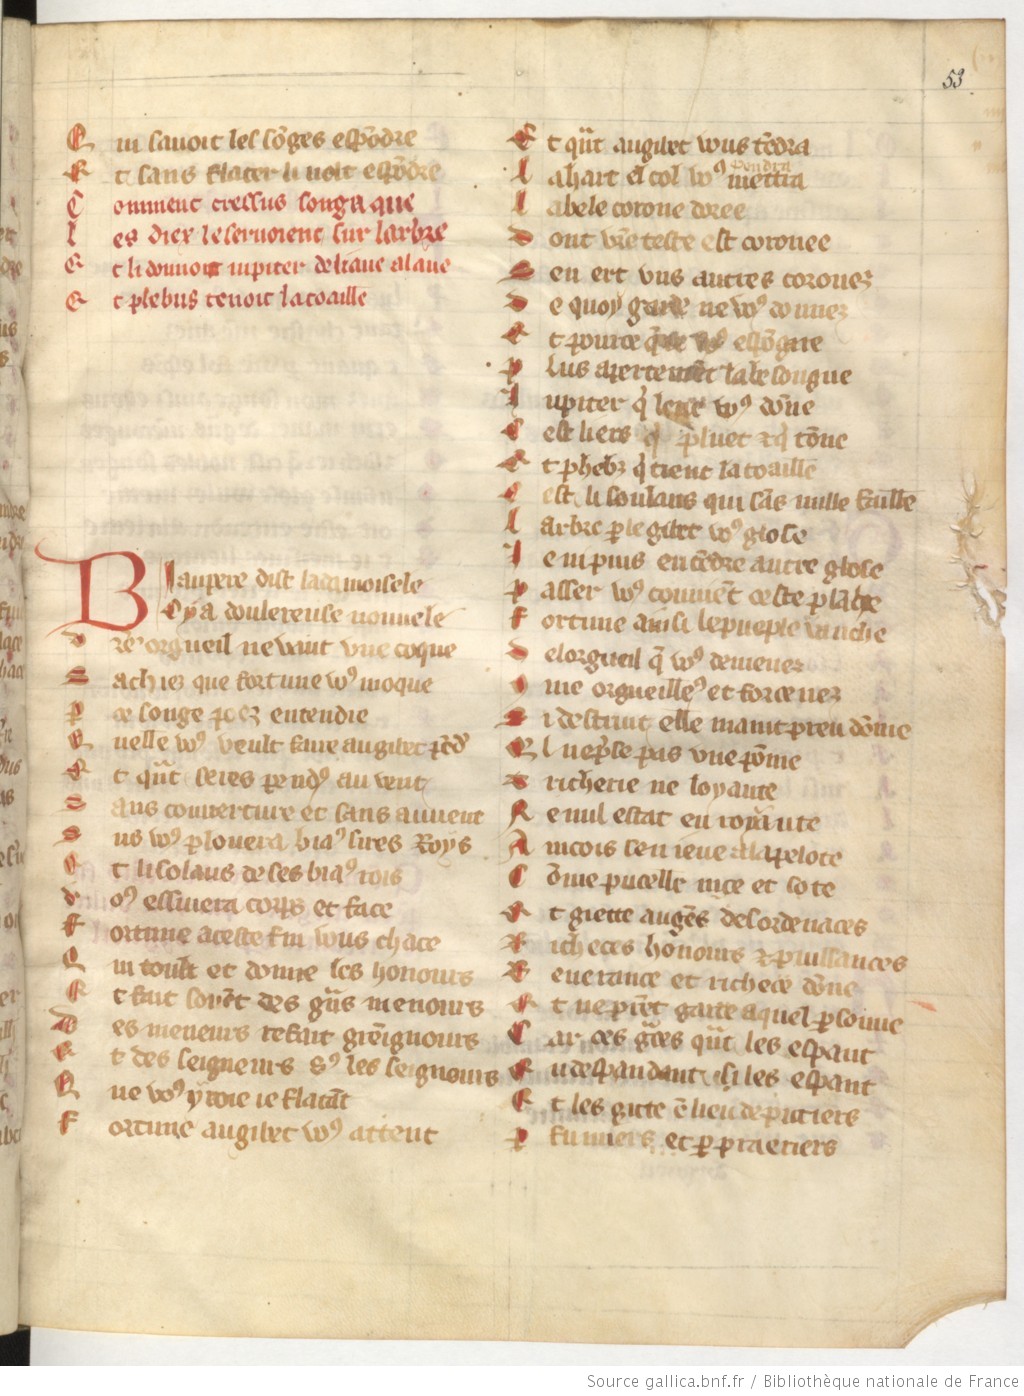 53
Qui savoit les sõges espõdre
Et sans flater li volt espõdre
Comment cressus songa que
les diex le servoient sur larbre
Et li donnoit iupiter de liaue a laue
Et phebus tenoit la toaille
Biau pere dist la damoisele
Ci a doulereuse nouvele
Vr̃e orgueil ne vaut une coque
Sachiez que fortune voꝰ moque
Par ce songe poez entendre
Quelle voꝰ veult faire au gibet pẽdr̃
Et qñt seres penduꝰ au vent
Sans couverture et sans auvent
Sus voꝰ plouvera biaꝰ sires Roys
Et li solaus de ses biaꝰ rois
Voꝰ essuiera corps et face
Fortune a ceste fin vous chace
Qui toult et donne les honours
Et fait sovẽt des grãs menours
Des meneurs refait greignours
Et des seigneurs sꝰ les seignours
Que voꝰ yroie ie flatãt
Fortune au gibet voꝰ attent
Et qũt au gibet vous tẽdra
La hart el col voꝰ mettra
La bele corone doree
Dont vr̃e teste est coronee
Sen ert uns autres coronez
De quoy garde ne voꝰ donnez
Et pource que voꝰ espõgne
Plus apertement la besongne
Iupiter q̃ leaue voꝰ dõne
Cest li ers q̃ pluet et q̃ tõne
Et pheb9 q̃ tient la toaille
Cest li soulaus qui sãs nulle faille
Larbre p le gibet voꝰ glose
Ie ni puis entẽdre autre glose
Passer voꝰ couviẽt ceste planche
Fortune ainsi le pueple vanche
Del orgueil q̃ voꝰ demenez
Cõme orgueilleꝰ et forcenez
Si destruit elle maint preudõme
Quel ne prise pas une põme
Tricherie ne loyaute
Ne nul estat en royaute
Aincois sen ieue a la pelote
Cõme pucelle nice et sote
Et giette a grãs desordenaces
Richeces honours et puissances
Reverance et richece dõne
Et ne prẽt garde a quel psonne
Car ses grãces qñt les espant
En despandant si les espant
Et les gitte ẽ lieu de putiers
Par fumiers et par praeriers
Source gallica.bnf.fr / Bibliothèque nationale de France